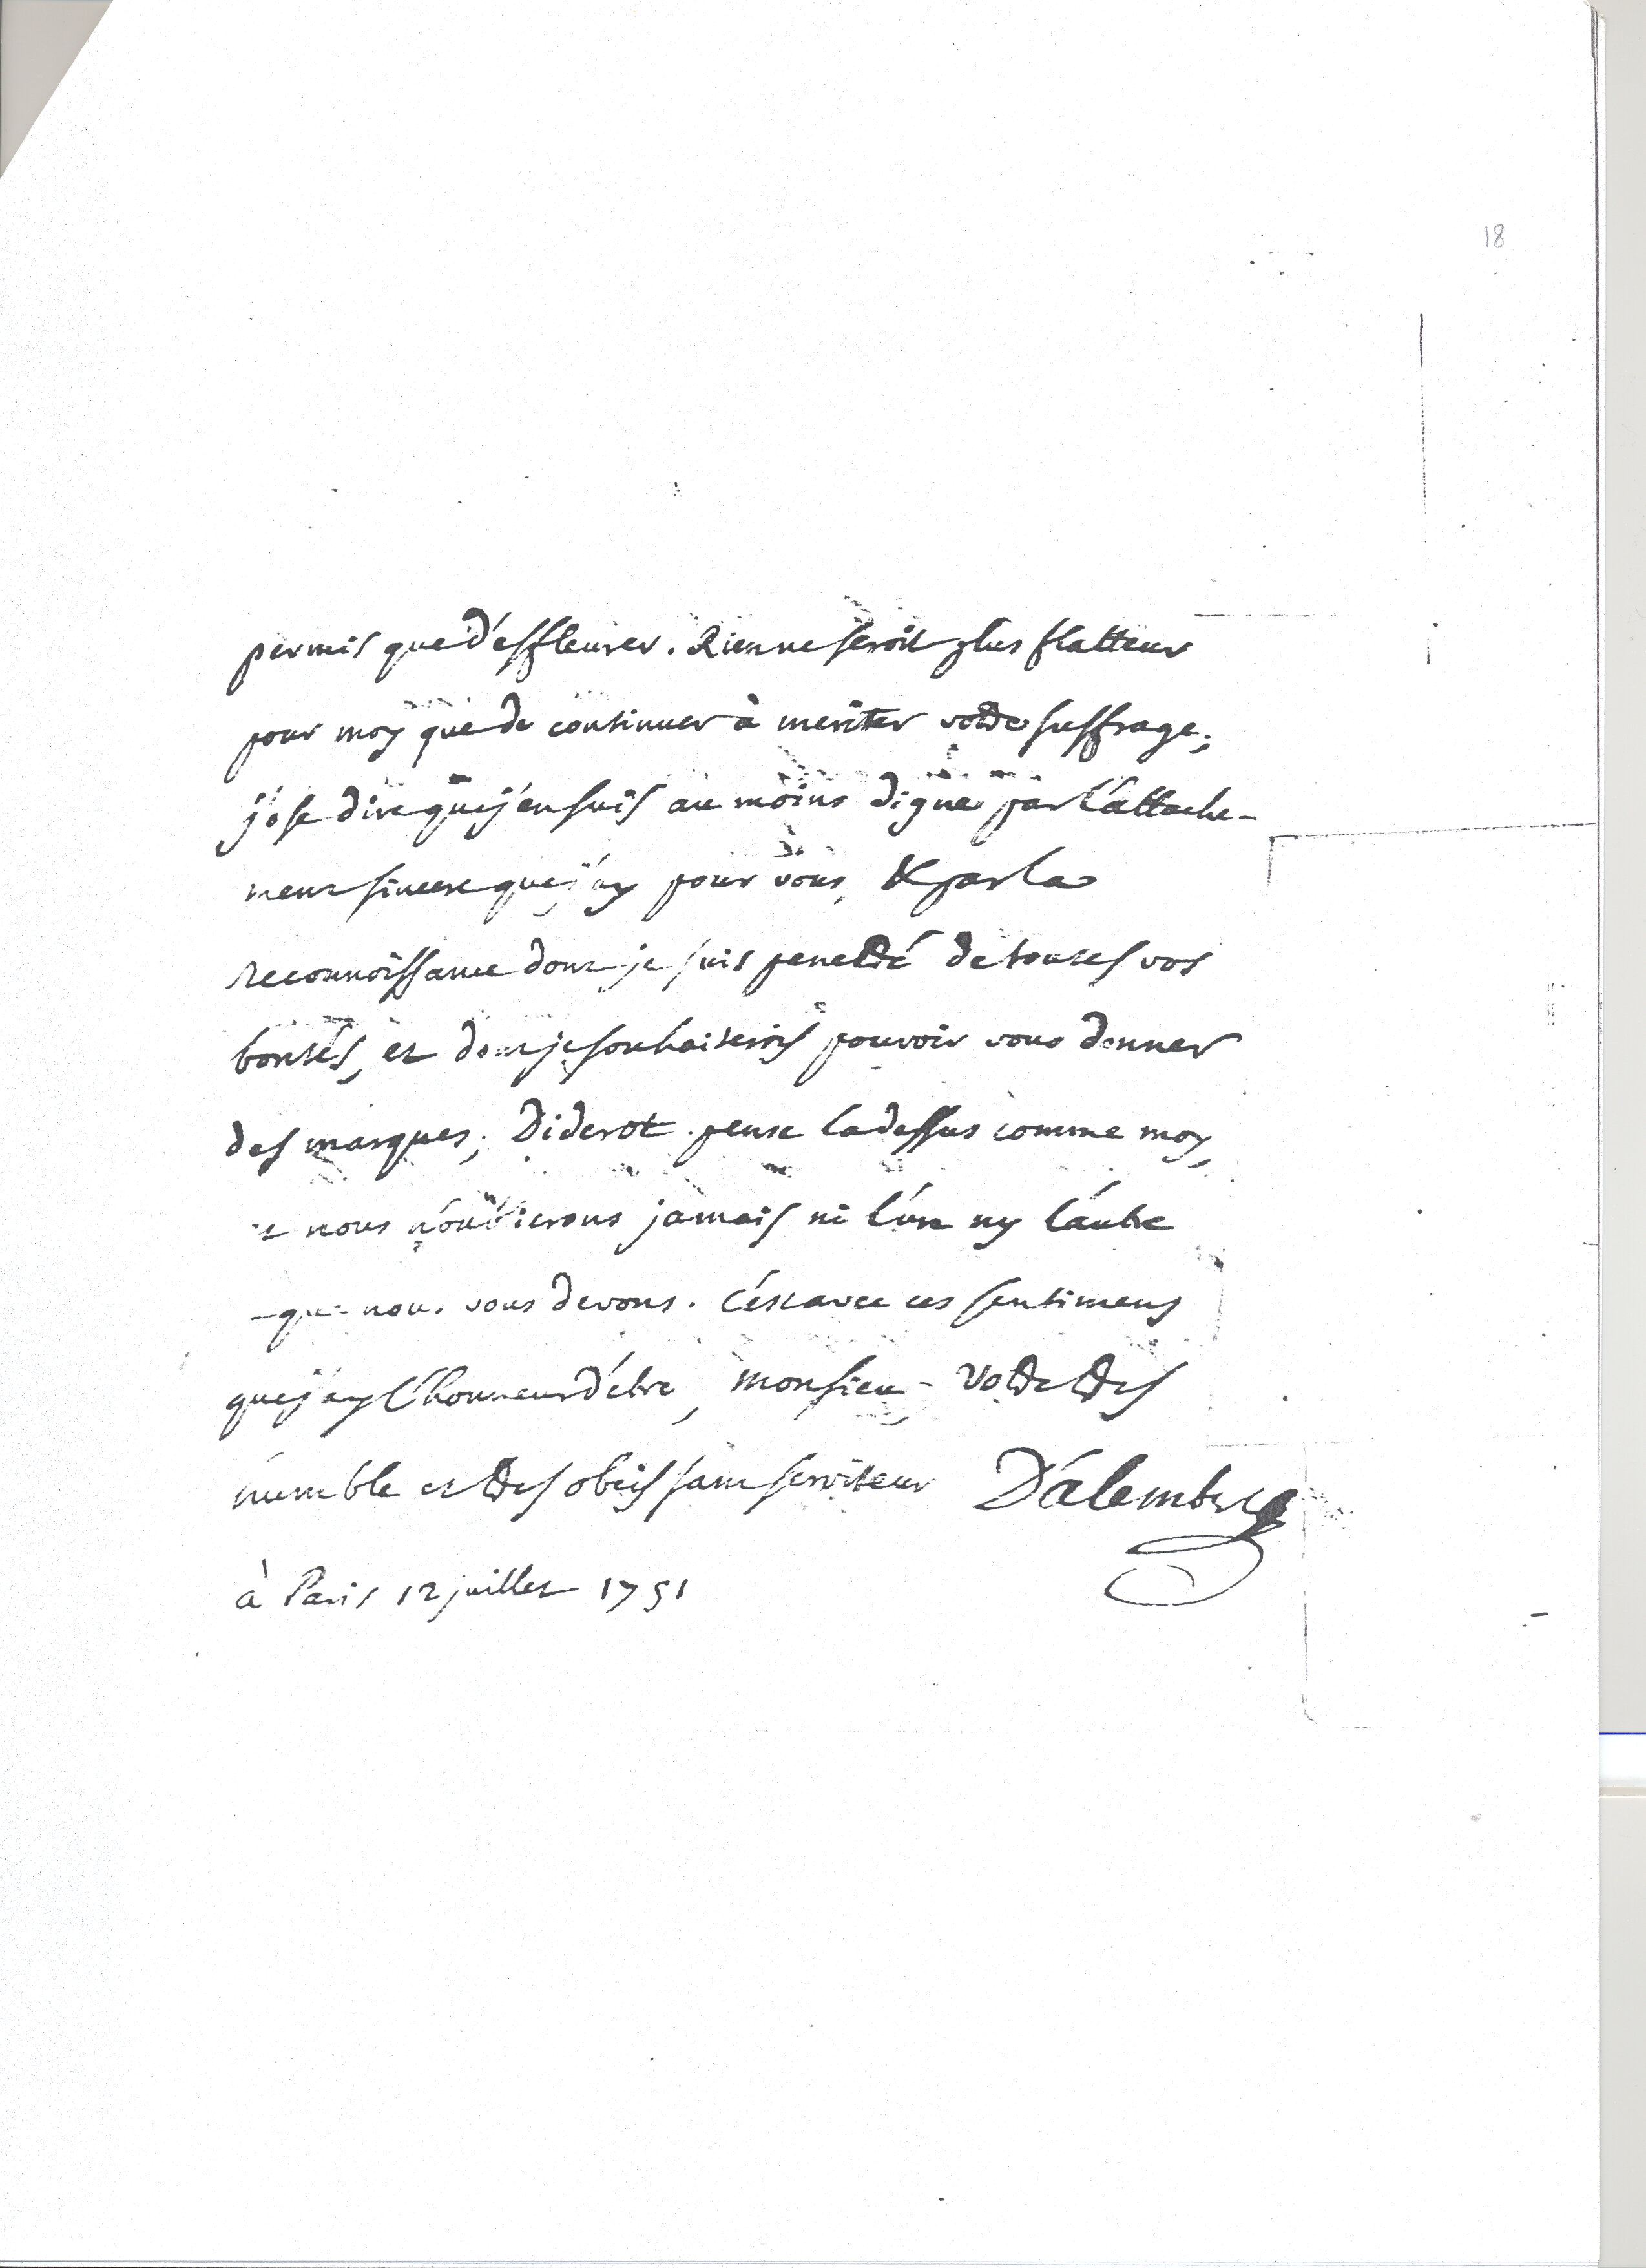 18
permis que d'effleurer. Rien ne seroit plus flatteur
pour moy que de continuer à meriter votre suffrage;
j'ose dire que j'en suis au moins digne par l'attache-
ment sincere que j'ay pour vous, & par la
reconnoissance dont je suis penetré de toutes vos
bontés, et dont je souhaiterois pouvoir vous donner
des marques; Diderot pense la dessus comme moy,
et nous n'oublierons jamais ni l'un ny l'autre
que nous vous devons. C'est avec ces sentimens
que j'ay l'honneur d'etre, monsieur votre tres
humble et tres obeissant serviteur D'alembert
à Paris 12 juillet 1751